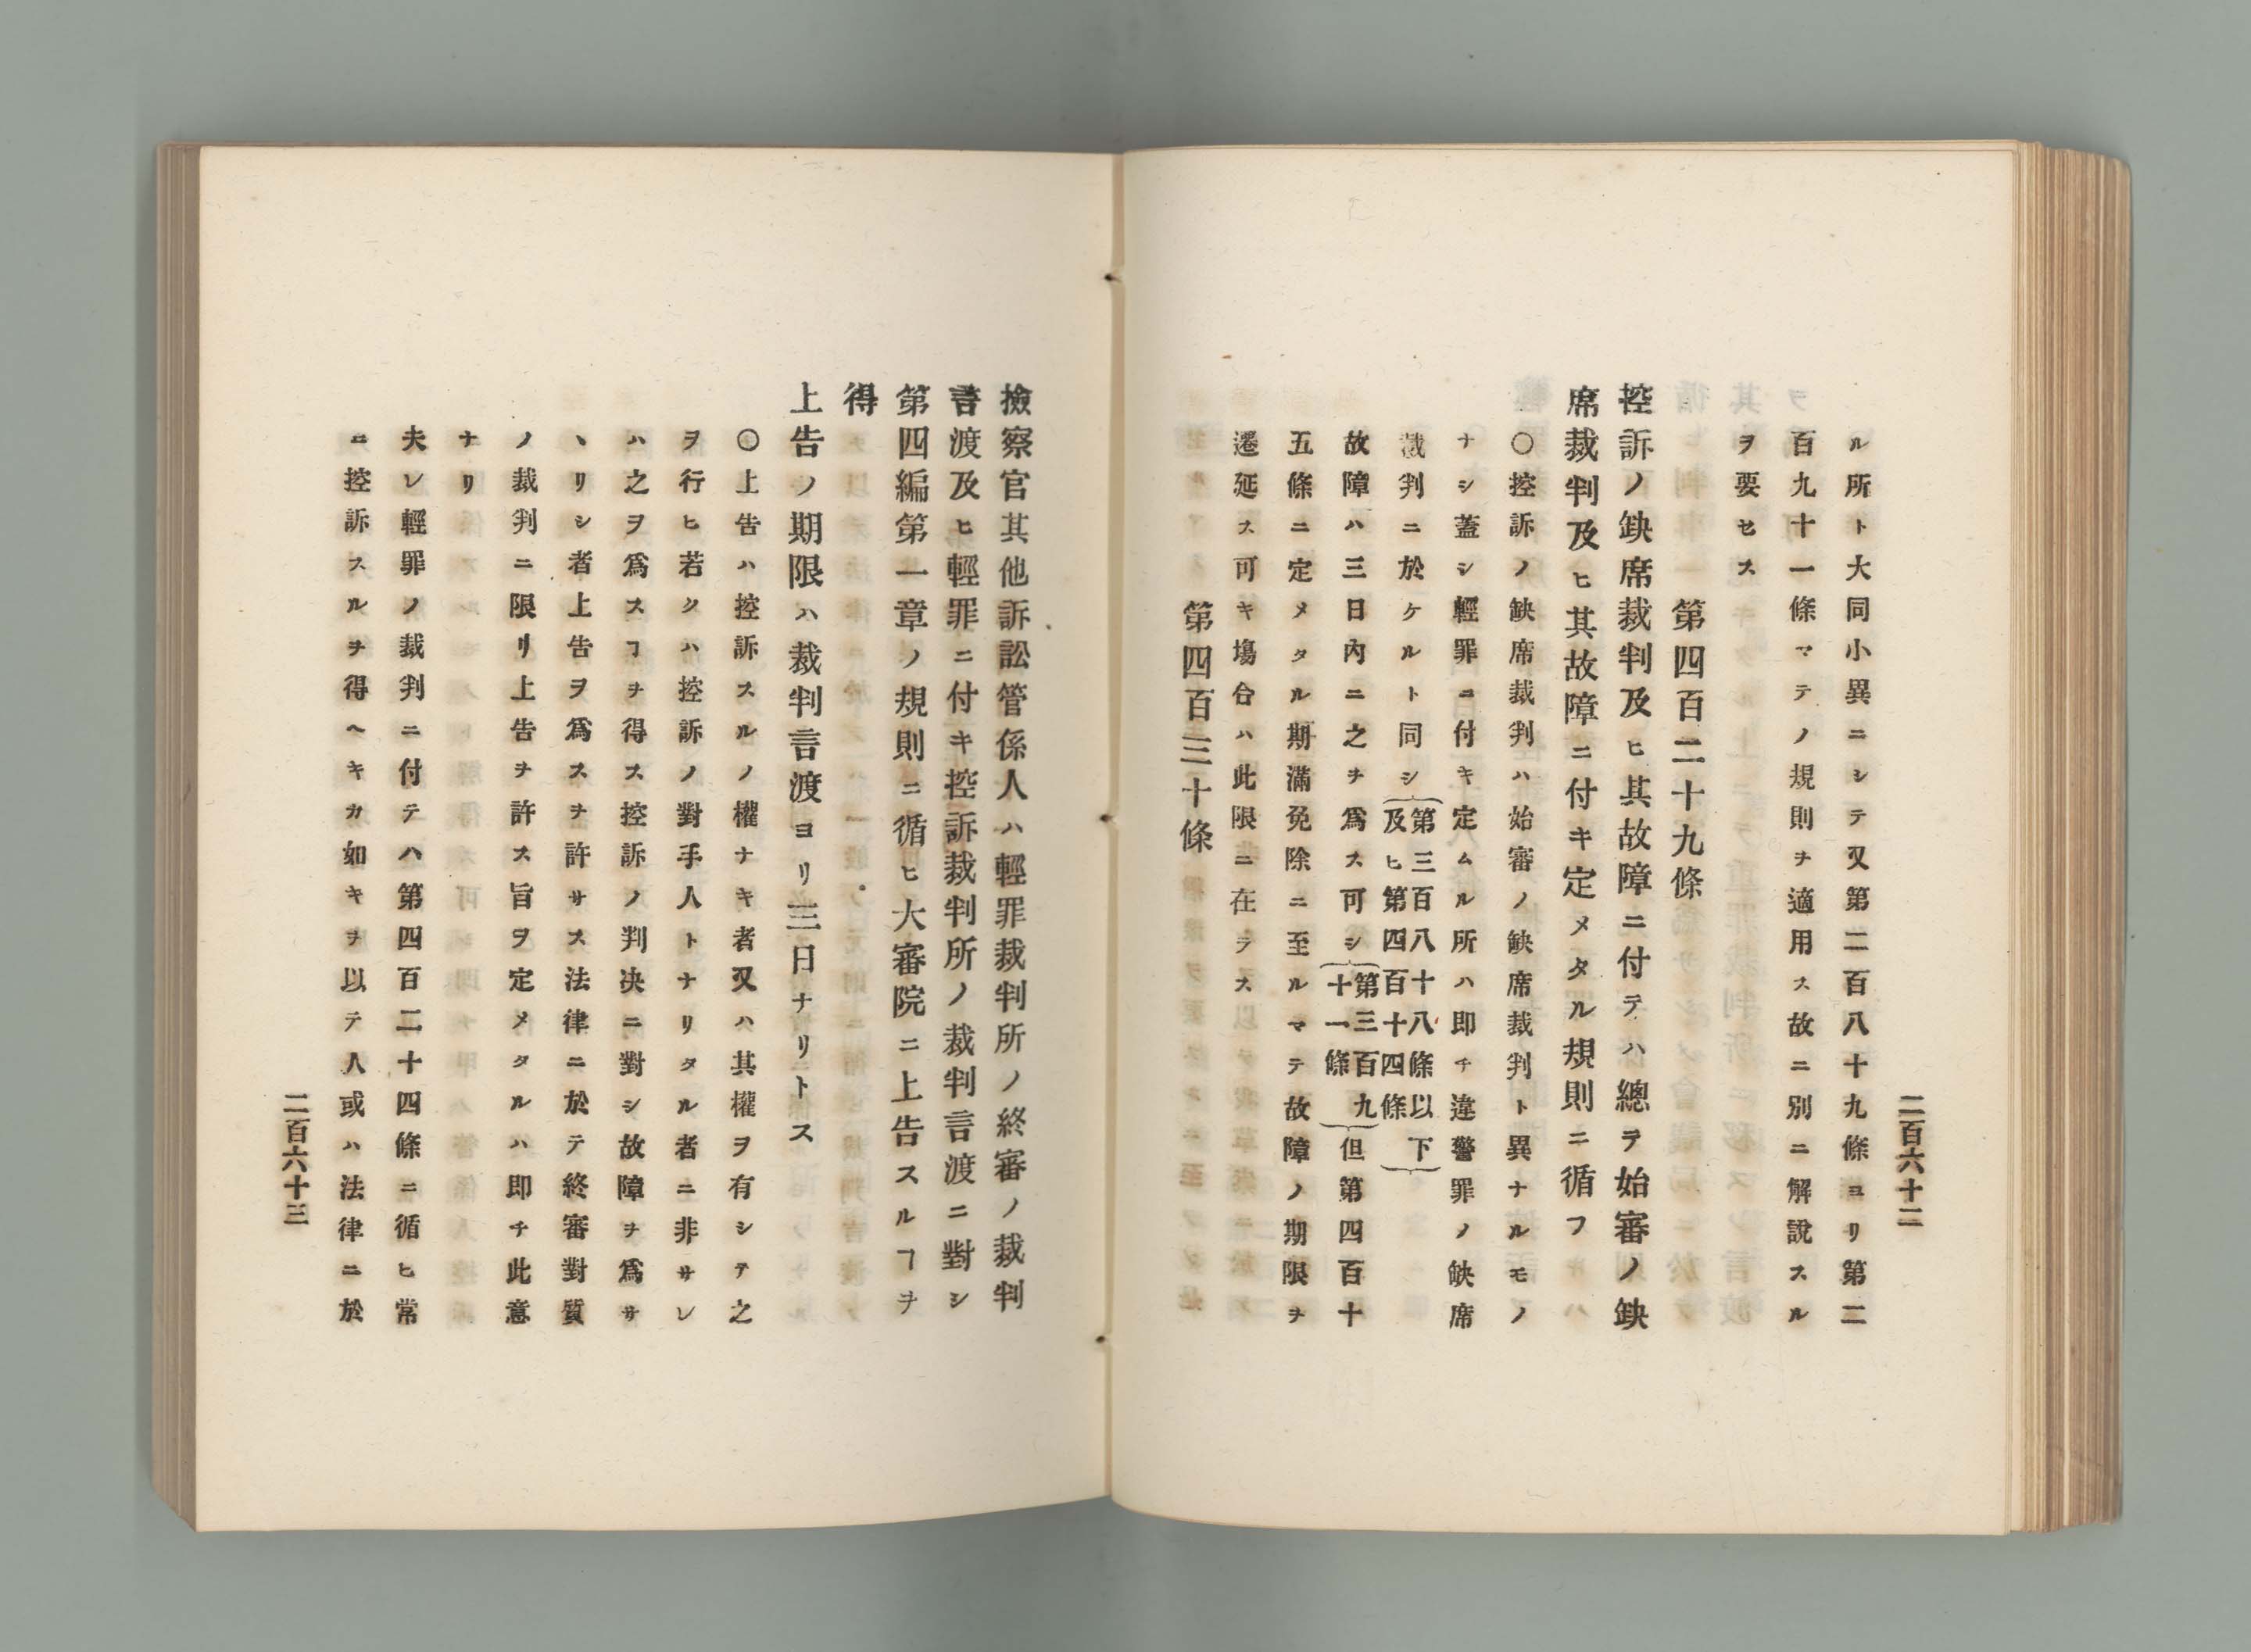 二百六十二
ル所ト大同小異ニシテ又第二百八十九條ヨリ第二
百九十一條マテノ規則ヲ適用ス故ニ別ニ解説スル
ヲ要セス
第四百二十九條
控訴ノ缺席裁判及ヒ其故障ニ付テハ總テ始審ノ缺
席裁判及ヒ其故障ニ付キ定メタル規則ニ循フ
〇控訴ノ缺席裁判ハ始審ノ缺席裁判ト異ナルモノ
ナシ蓋シ輕罪ニ付キ定ムル所ハ即チ違警罪ノ缺席
裁判ニ於ケルト同シ(第三百八十八條以下及ヒ第四百十四條)
故障ハ三日内ニ之ヲ爲ス可シ(第三百九十一條)但第四百十
五條ニ定メタル期滿免除ニ至ルマテ故障ノ期限ヲ
遷延ス可キ塲合ハ此限ニ在ラス
第四百三十條
撿察官其他訴訟管係人ハ輕罪裁判所ノ終審ノ裁判
言渡及ヒ輕罪ニ付キ控訴裁判所ノ裁判言渡ニ對シ
第四編第一章ノ規則ニ循ヒ大審院ニ上告スルヿヲ
得
上告ノ期限ハ裁判言渡ヨリ三日ナリトス
〇上告ハ控訴スルノ權ナキ者又ハ其權ヲ有シテ之
ヲ行ヒ若クハ控訴ノ對手人トナリタル者ニ非サレ
ハ之ヲ爲スヿヲ得ス控訴ノ判决ニ對シ故障ヲ爲サ
ヽリシ者上告ヲ爲スヲ許サス法律ニ於テ終審對質
ノ裁判ニ限リ上告ヲ許ス旨ヲ定メタルハ即チ此意
ナリ
夫レ輕罪ノ裁判ニ付テハ第四百二十四條ニ循ヒ常
ニ控訴スルヲ得ヘキカ如キヲ以テ人或ハ法律ニ於
二百六十三